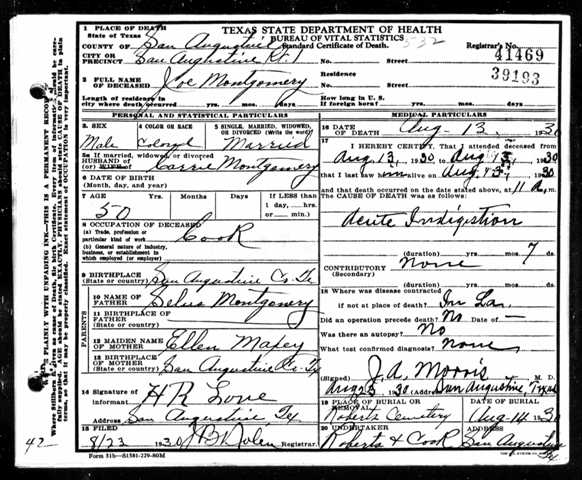 TEXAS STATE DEPARTMENT OF HEALTH
BUREAU OF VITAL STATISTICS
Standard Certificate of Death.
1 PLACE OF DEATH
State of Texas
COUNTY OF San Augustine
Registrar's No.
41469
CITY OR PRECINCT San Augustine Rt. 1 No. Street
39193
2 FULL NAME OF DECEASED Joe Montgomery
Residence
No. Street
Length of residence in city where death occurred yrs. mos. days
How long in U. S. if foreign born? yrs. mos. days
PERSONAL AND STATISTICAL PARTICULARS
3. SEX 4 COLOR OR RACE 5 SINGLE, MARRIED, WIDOWED, OR DIVORCED (Write the word)
Male Colored Married
5a If married, widowed or divorced
HUSBAND OF
(or) WIFE OF Carrie Montgomery
6 DATE OF BIRTH
(Month, day, and year)
7 AGE Years Months Days If LESS than
1 day, ....hrs
or......minutes
50
8 OCCUPATION OF DECEASED
(a) Trade, profession or particular kind of work Cook
(b) General nature of industry, business, or establishment in which employed (or employer)
9 BIRTHPLACE
(State or country) San Augustine Co. Tx
PARENTS
10 NAME OF FATHER Montgomery
11 BIRTHPLACE OF FATHER
(State or country)
12 MAIDEN NAME OF MOTHER Ellen Maxey
13 BIRTHPLACE OF MOTHER
(State or country) San Augustine Co-Tx
14 Signature of informant H R Love
Address San Augustine Tex
15 FILED 8/23 1930 Registrar.
MEDICAL PARTICULARS
16 DATE OF DEATH Aug- 13, 1930
17 I HEREBY CERTIFY, That I attended deceased from
Aug. 13, 1930 to Aug. 13, 1930
that I last saw him alive on Aug. 13, 1930
and that death occurred on the date stated above, at 11 a m.
THE CAUSE OF DEATH was as follows:
Acute Indigestion
(duration) yrs. mos. 7 ds.
CONTRIBUTORY None
(Secondary)
(duration) yrs. mos. ds.
18 Where was disease contracted
if not at place of death?
Did an operation precede death? No Date of —
Was there an autopsy? No
What test confirmed diagnosis? none
(Signed) J. A. Morris M. D.
1930 San Augustine, Texas
19 PLACE OF BURIAL REMOVAL DATE OF BURIAL
Roberts Cemetery Aug-14 1930
20 UNDERTAKER ADDRESS
Roberts & Cook San Augustine Tx
42-
Form 51b-S1581-229-80M